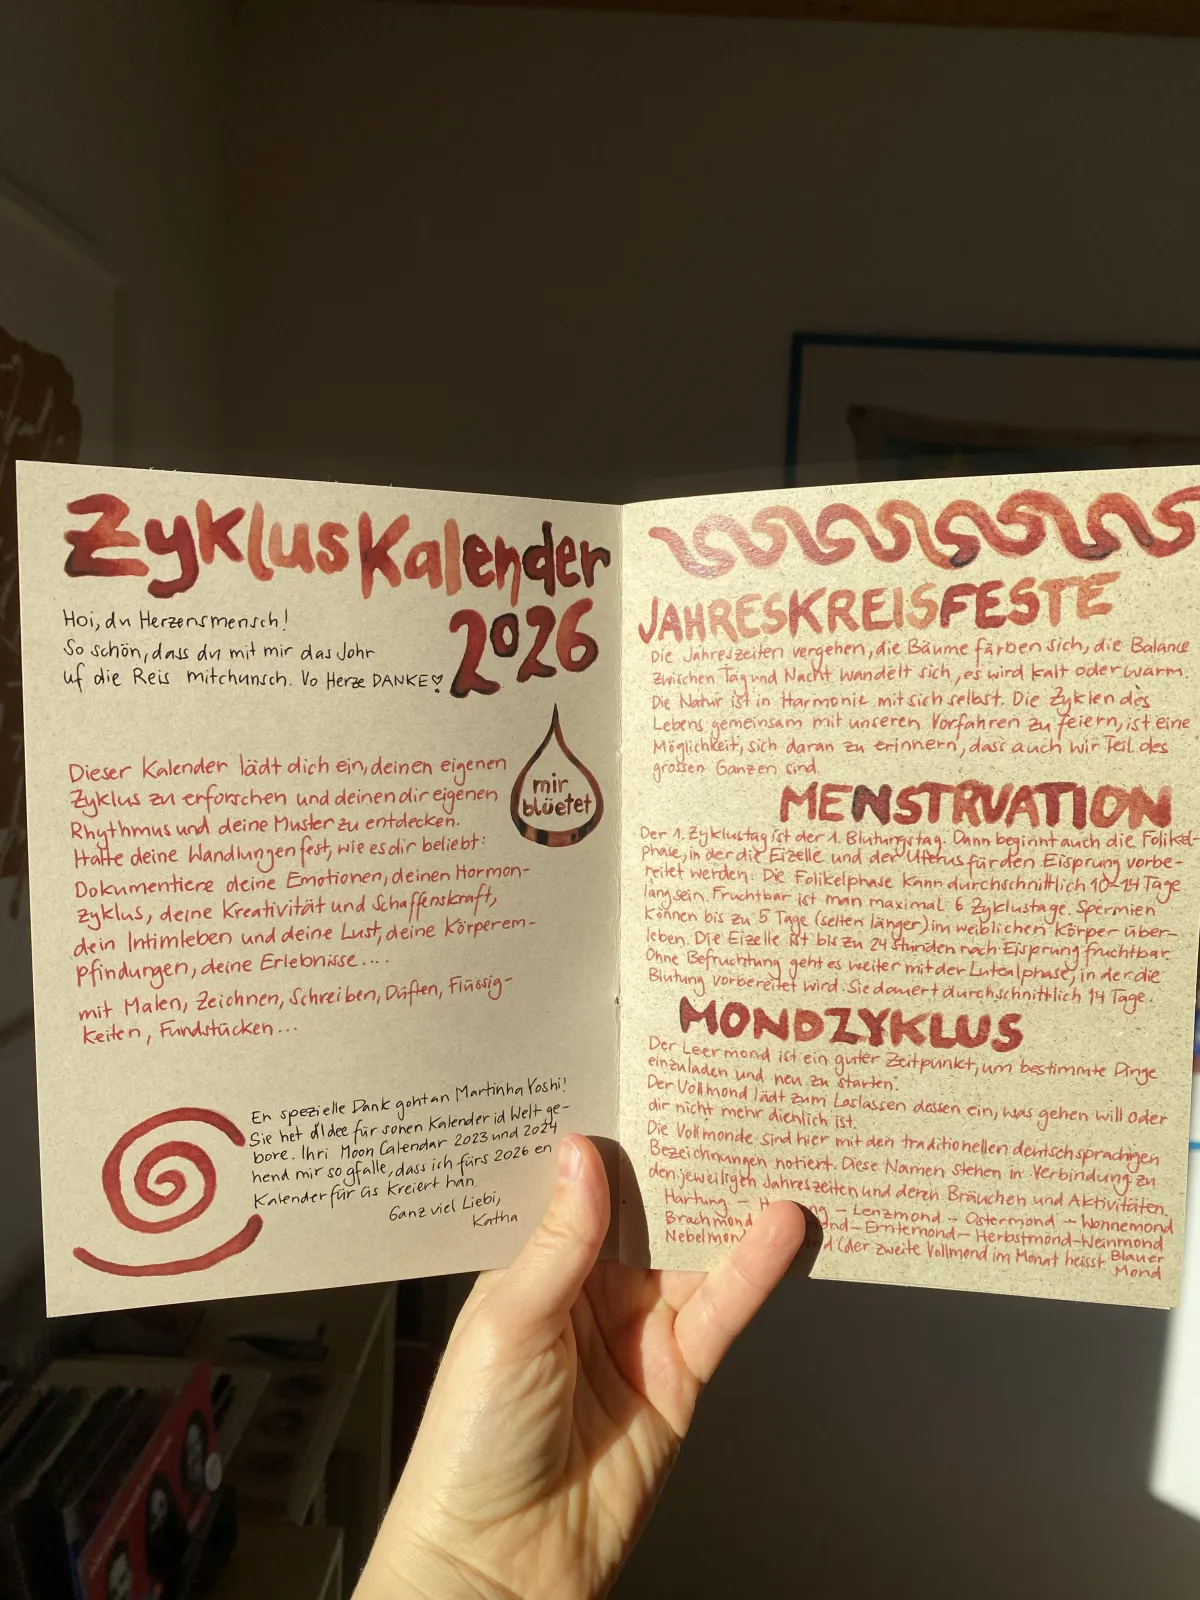 ZyklusKalender
2026
Hoi, du Herzensmensch!
So schön, dass du mit mir das Johr
uf die Reis mitchunsch. Vo Herze DANKE♡
mir
blüetet
Dieser Kalender lädt dich ein, deinen eigenen
Zyklus zu erforschen und deinen dir eigenen
Rhythmus und deine Muster zu entdecken.
Halte deine Wandlungen fest, wie es dir beliebt:
Dokumentiere deine Emotionen, deinen Hormon-
zyklus, deine Kreativität und Schaffenskraft,
dein Intimleben und deine Lust, deine Körperem-
pfindungen, deine Erlebnisse....
mit Malen, Zeichnen, Schreiben, Düften, Flüssig-
keiten, Fundstücken...
En spezielle Dank goht an Martinha Yoshi!
Sie het d'Idee für sonen Kalender id Welt ge-
bore. Ihri Moon Calendar 2023 und 2024
hend mir so gfalle, dass ich fürs 2026 en
Kalender für üs kreiert han.
Ganz viel Liebi,
Katha
JAHRESKREISFESTE
Die Jahreszeiten vergehen, die Bäume färben sich, die Balance
zwischen Tag und Nacht wandelt sich, es wird kalt oder warm.
Die Natur ist in Harmonie mit sich selbst. Die Zyklen des
Lebens gemeinsam mit unseren Vorfahren zu feiern, ist eine
Möglichkeit, sich daran zu erinnern, dass auch wir Teil des
grossen Ganzen sind.
MENSTRUATION
Der 1. Zyklustag ist der 1. Blutungstag. Dann beginnt auch die Folikel-
phase, in der die Eizelle und der Uterus für den Eisprung vorbe-
reitet werden. Die Folikelphase kann durchschnittlich 10-14 Tage
lang sein. Fruchtbar ist man maximal 6 Zyklustage. Spermien
können bis zu 5 Tage (selten länger) im weiblichen Körper über-
leben. Die Eizelle ist bis zu 24 Stunden nach Eisprung fruchtbar.
Ohne Befruchtung geht es weiter mit der Lutealphase, in der die
Blutung vorbereitet wird. Sie dauert durchschnittlich 14 Tage.
MONDZYKLUS
Der Leermond ist ein guter Zeitpunkt, um bestimmte Dinge
einzuladen und neu zu starten.
Der Vollmond lädt zum Loslassen dessen ein, was gehen will oder
dir nicht mehr dienlich ist.
Die Vollmonde sind hier mit den traditionellen deutschsprachigen
Bezeichnungen notiert. Diese Namen stehen in Verbindung zu
den jeweiligen Jahreszeiten und deren Bräuchen und Aktivitäten.
Hartung – – Lenzmond – Ostermond – Wonnemond
Brachmond – Erntemond – Herbstmond – Weinmond
Nebelmond (der zweite Vollmond im Monat heisst Blauer
Mond